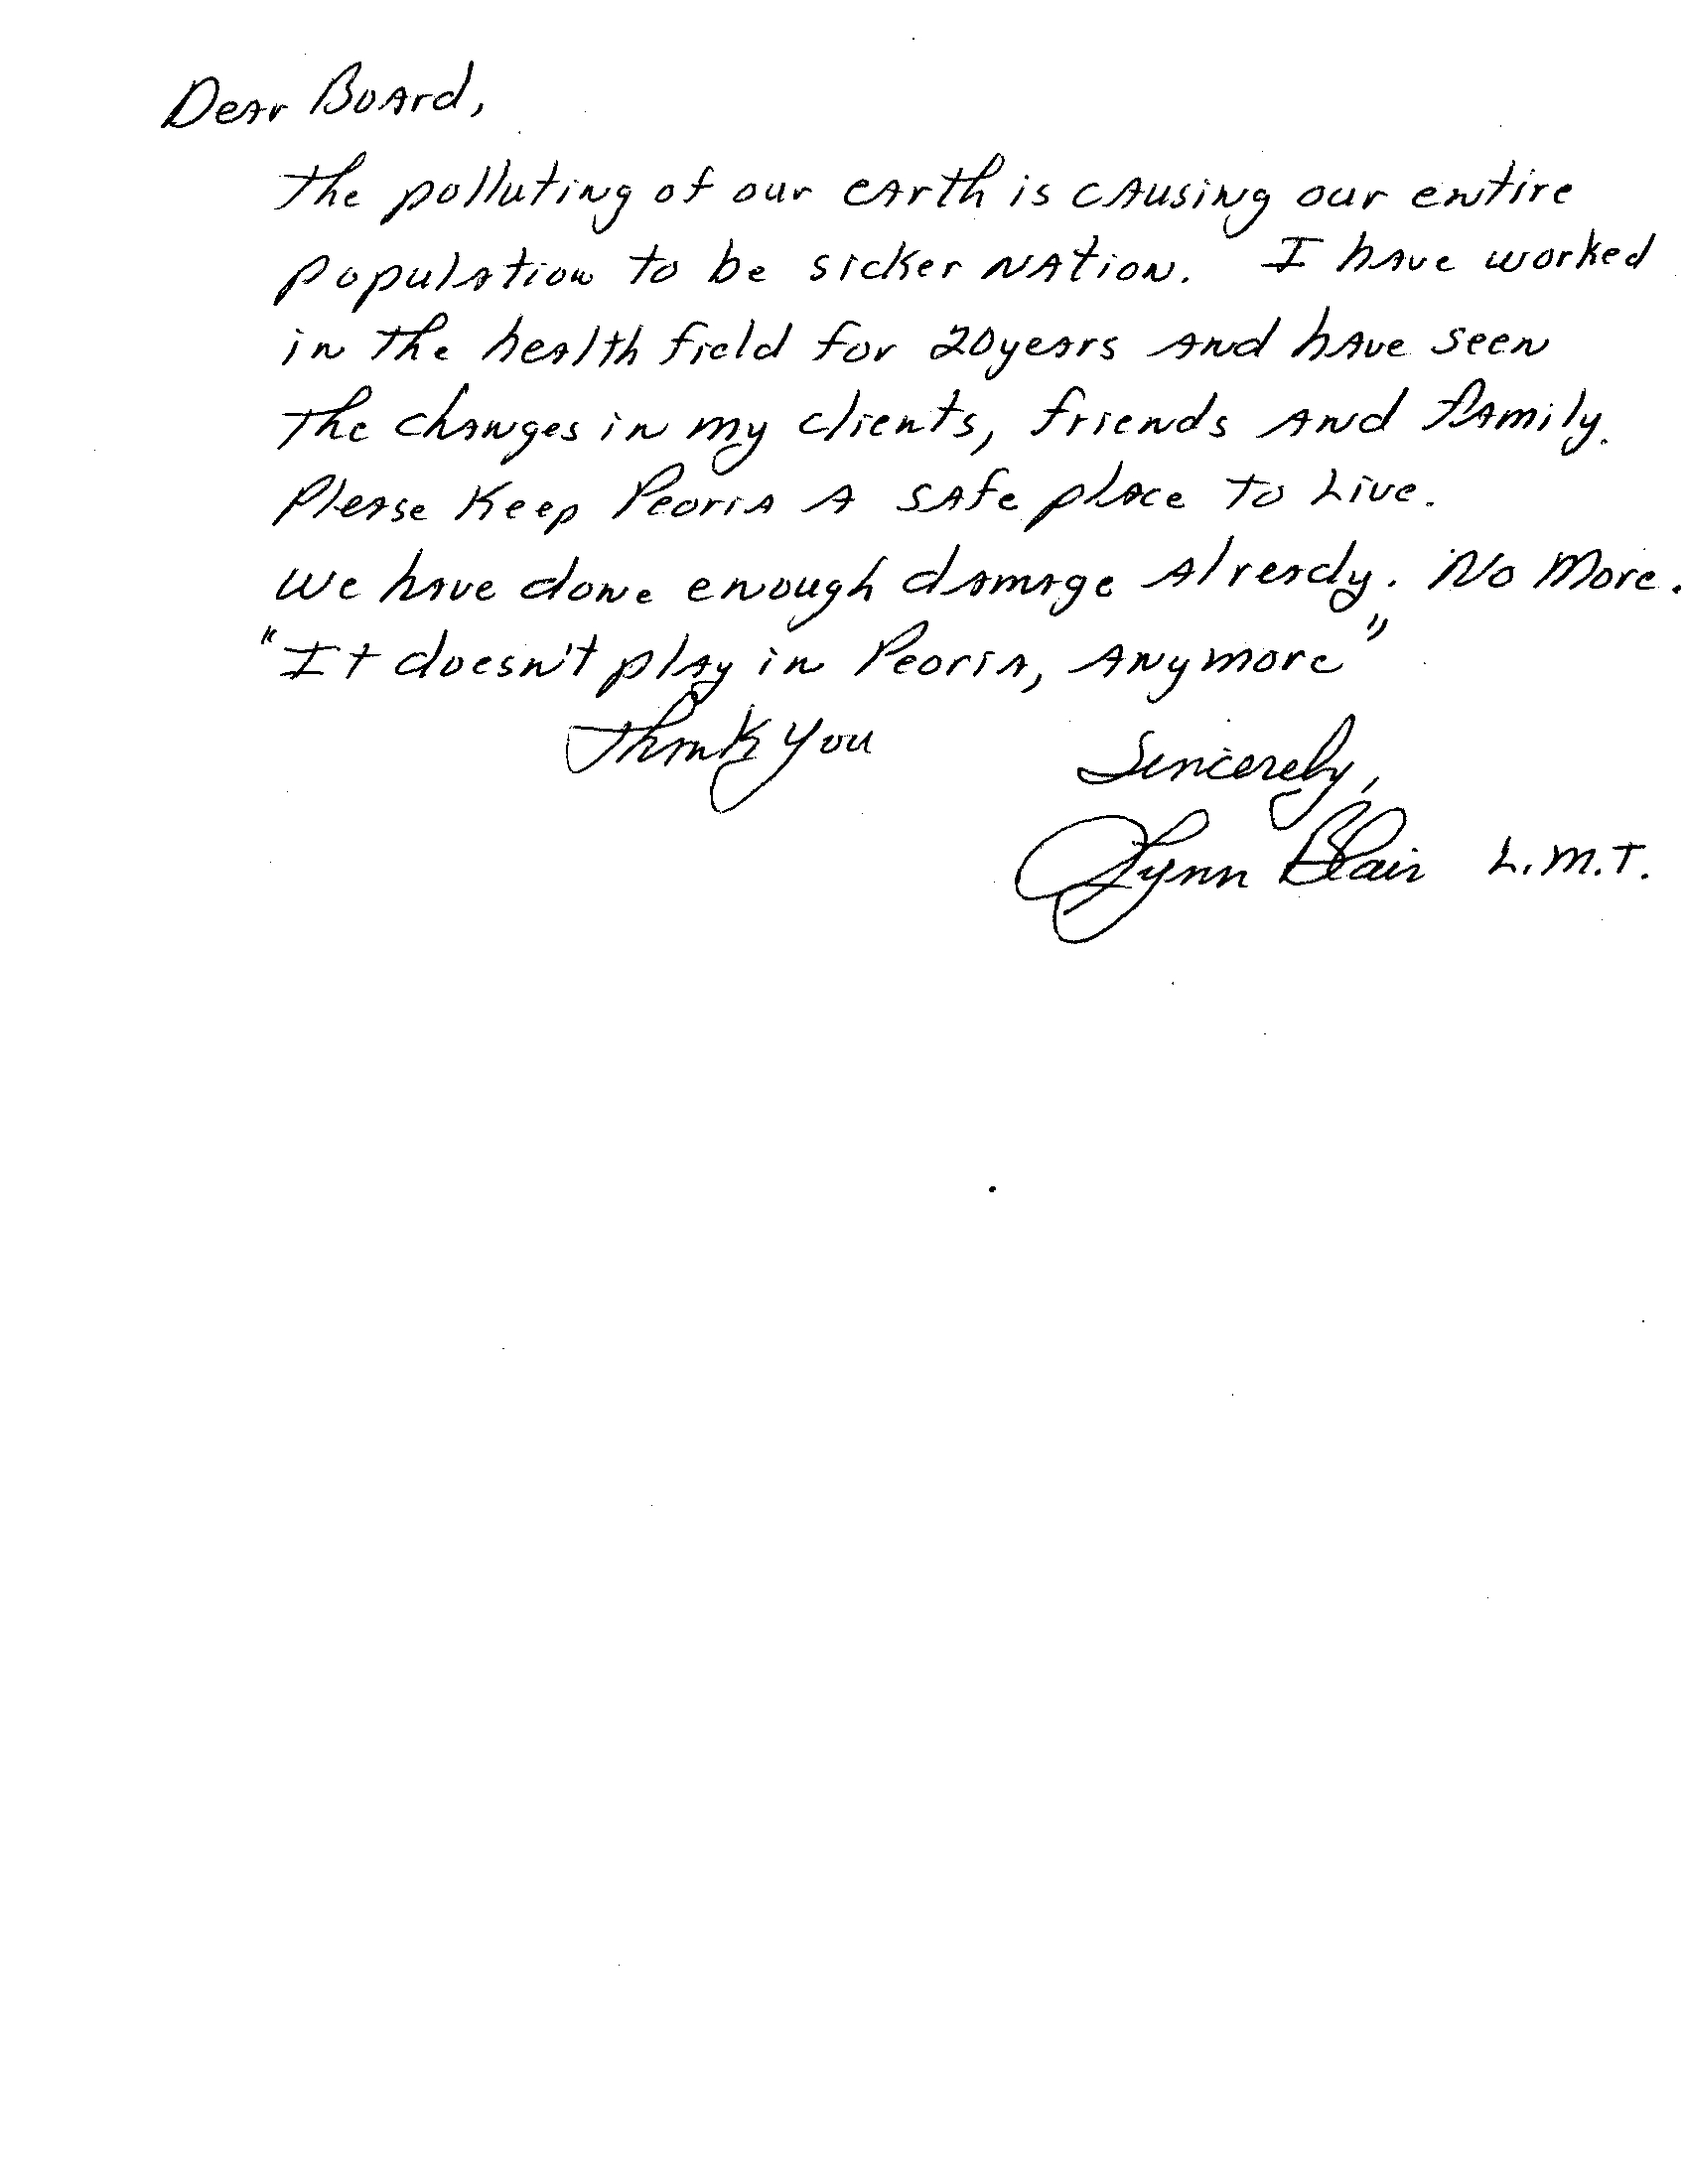 Dear Board,
The polluting of our earth is causing our entire
population to be sicker nation. I have worked
in the health field for 20 years and have seen
the changes in my clients, friends and family.
Please Keep Peoria a safe place to Live.
We have done enough damage already. No More.
"It doesn't play in Peoria, anymore"
Thank You
Sincerely,
Lynn Blair L.M.T.